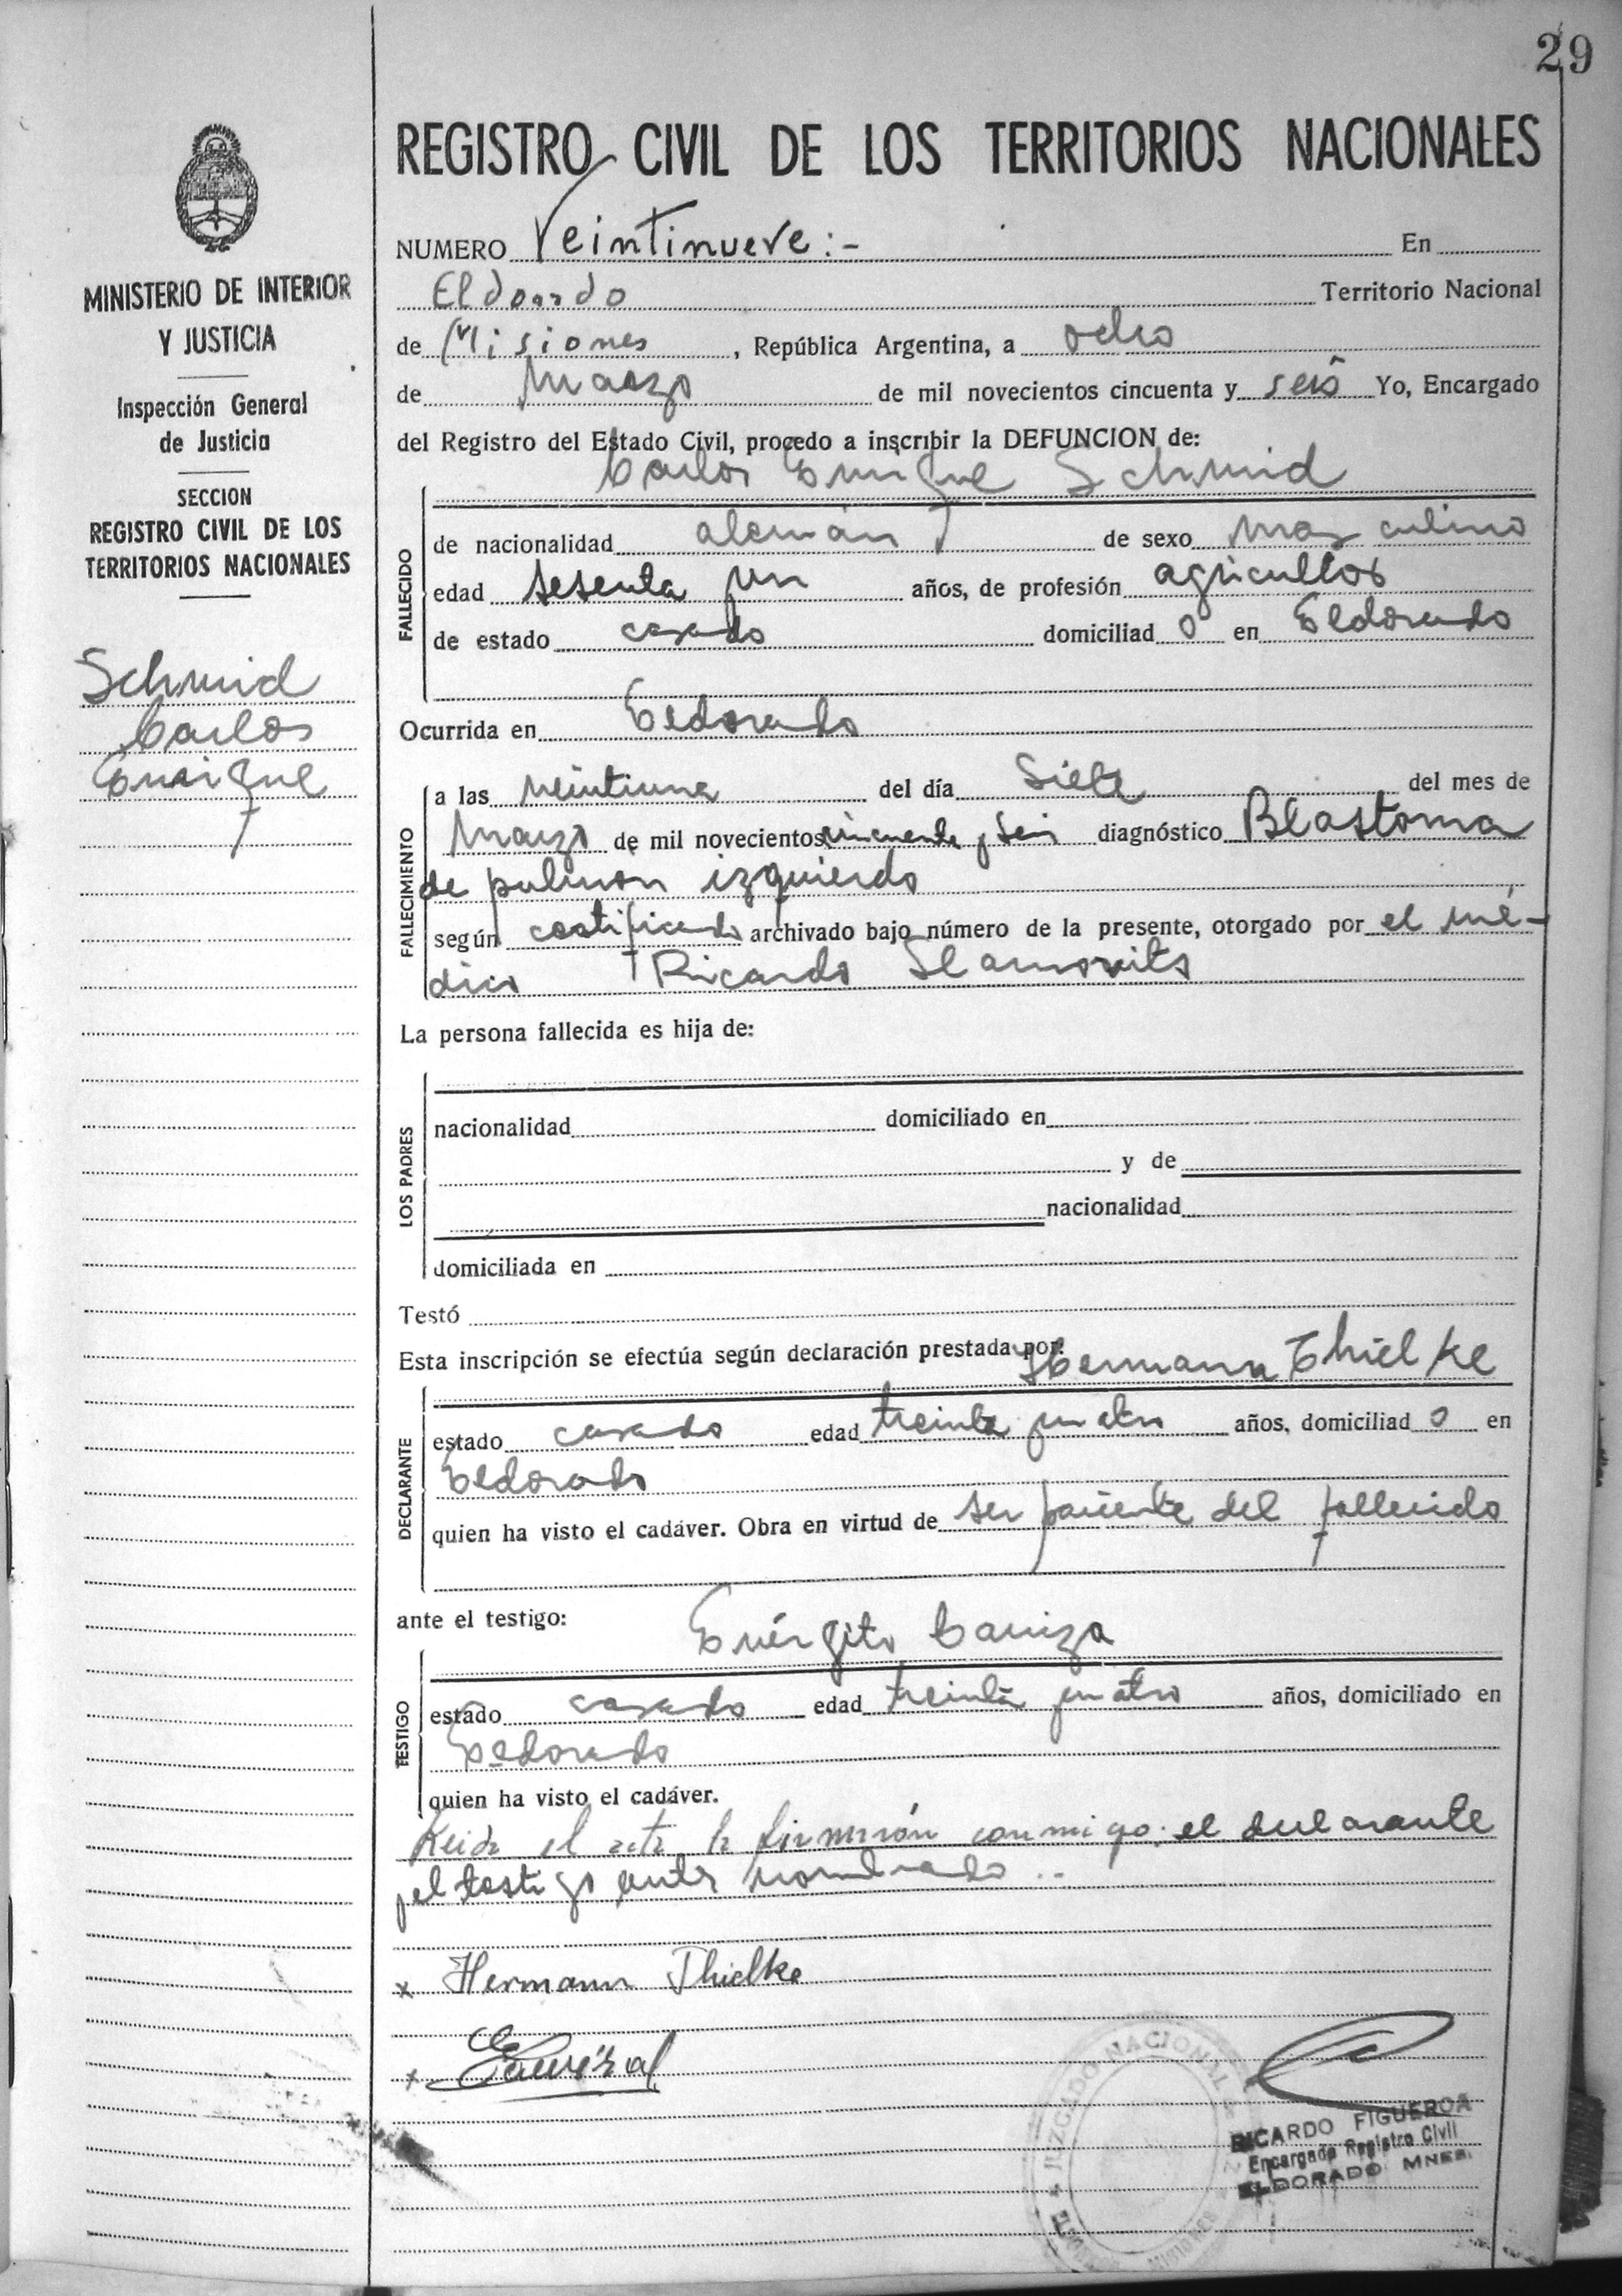 29
REGISTRO CIVIL DE LOS TERRITORIOS NACIONALES
NUMERO Veintinueve:- En
Eldorado Territorio Nacional
de Misiones, República Argentina, a ocho
de Marzo de mil novecientos cincuenta y seis Yo, Encargado
del Registro del Estado Civil, procedo a inscribir la DEFUNCION de:
Carlos Enrique Schmid
FALLECIDO
de nacionalidad alemán de sexo masculino
edad sesenta y un años, de profesión agricultor
de estado casado domiciliado en Eldorado
Ocurrida en Eldorado
FALLECIMIENTO
a las veintiuna del día Siete del mes de
Marzo de mil novecientos cincuenta y seis diagnóstico Blastoma
de pulmon izquierdo
según certificado archivado bajo número de la presente, otorgado por el mé-
dico Ricardo
La persona fallecida es hija de:
LOS PADRES
nacionalidad domiciliado en
y de
nacionalidad
domiciliada en
Testó
Esta inscripción se efectúa según declaración prestada por: Hermann Thielke
DECLARANTE
estado casado edad treinta y cuatro años, domiciliado en
Eldorado
quien ha visto el cadáver. Obra en virtud de ser pariente del fallecido
ante el testigo:
TESTIGO
estado casado edad treinta y cuatro años, domiciliado en
Eldorado
quien ha visto el cadáver.
Leida el acta la firmarón conmigo: el declarante
y el testigo antes nombrado..
x Hermann Thielke
x
MINISTERIO DE INTERIOR
Y JUSTICIA
Inspección General
de Justicia
SECCION
REGISTRO CIVIL DE LOS
TERRITORIOS NACIONALES
Schmid
Carlos
Enrique
JUZGADO NACIONAL
RICARDO FIGUEROA
Encargado Registro Civil
ELDORADO MNES.